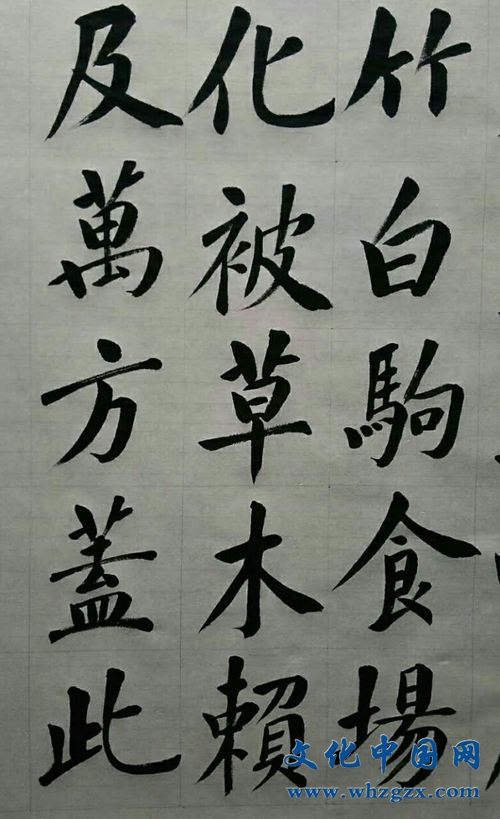 竹白駒食場
化被草木賴
及萬方蓋此
文化中国网
www.whzgzx.com